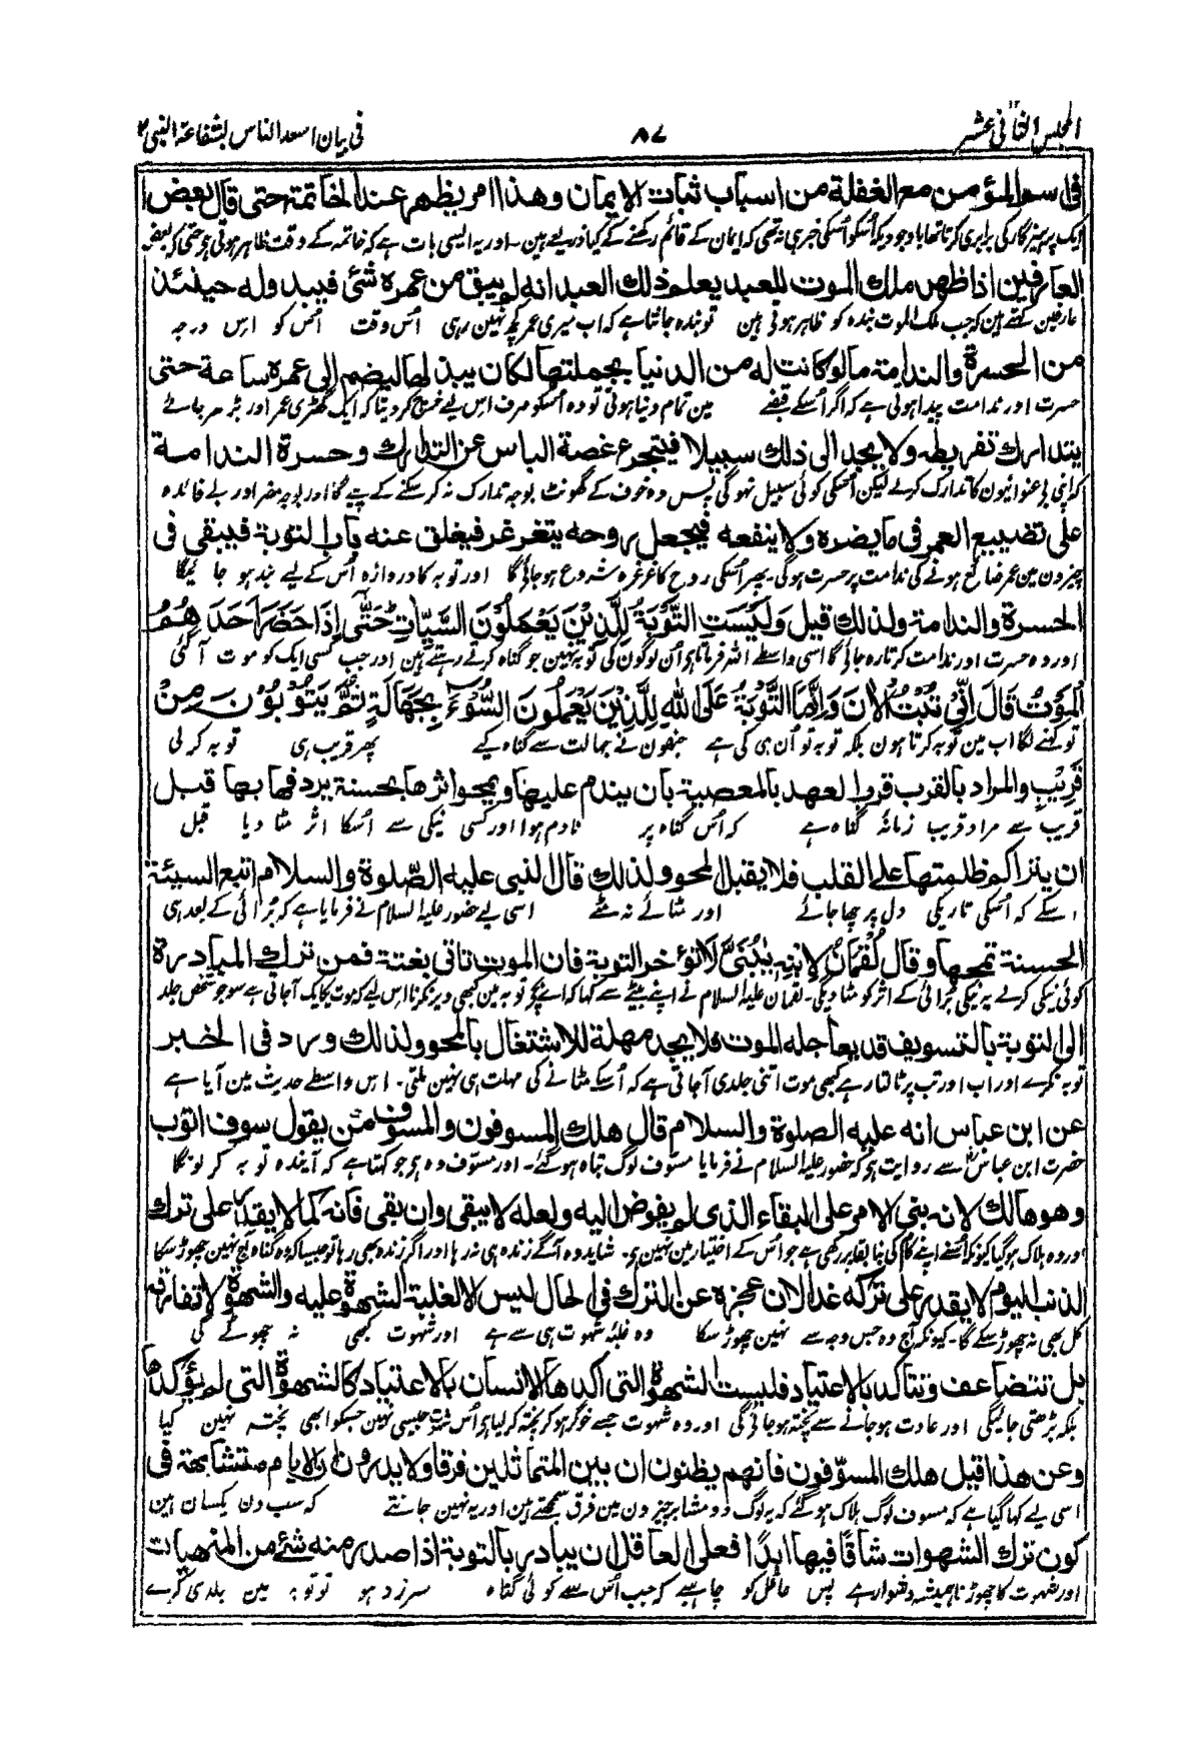 المجلس الثانی عشر
۸۷
فی بیان اسعد الناس بشفاعة النبی
فی اسوالمؤمن مع الغفلة من اسباب ثبات الایمان وهذا امر یظهر عند الخاتمة حتی قال بعض
ایک پرہیزگار کی برابری کرتا تھا باوجودیکہ اُسکو اُسکی خبر ہی نہ تھی کہ ایمان کے قائم رکھنے کے کیا ذریعے ہین ۔ اور یہ ایسی بات ہے کہ خاتمہ کے وقت ظاہر ہوتی ہے حتی کہ بعض
العارفین اذا ظهر ملك الموت للعبد یعلم ذلك العبد انه لم یبق من عمره شئ فیبدو له حینئذ
عارفین کہتے ہین کہ جب ملک الموت بندہ کو ظاہر ہوتی ہین تو بندہ جانتا ہے کہ اب میری عمر کچھ نہین رہی اُس وقت اُس کو اِس درجہ
من الحسرة والندامة مالو کانت له من الدنیا بجملتها لکان یبذلها لیضم الی عمره ساعة حتی
حسرت اور ندامت پیدا ہوتی ہے کہ اگر اُسکے قبضے مین تمام دنیا ہوتی تو وہ اُسکو صرف اس لیے خرچ کر دیتا کہ ایک گھڑی عمر اور بڑھ جائے
یتدارك تفریطه ولا یجد الی ذلك سبیلا فیتجرع غصة الیاس عن التدارك وحسرة الندامة
کہ اپنی بے عنوانیون کا تدارک کرلے لیکن اُسکی کوئی سبیل نہو گی پس وہ خوف کے گھونٹ بوجہ تدارک نہ کر سکنے کے پیے گا اور بوجہ مضر اور بے فائدہ
علی تضییع العمر فی مایضره ولا ینفعه فیجعل روحه یتغرغر فیغلق عنه باب التوبة فیبقی فی
چیزون مین عمر ضائع ہونے کی ندامت پر حسرت ہو گی ۔ پھر اُسکی روح کا غرغرہ شروع ہو جائیگا اور توبہ کا دروازہ اُس کے لیے بند ہو جائیگا
الحسرة والندامة ولذلك قیل وَلَیْسَتِ التَّوْبَةُ لِلَّذِیْنَ یَعْمَلُوْنَ السَّیِّاٰتِ حَتّٰی اِذَا حَضَرَ اَحَدَهُمُ
اور وہ حسرت اور ندامت کرتا رہ جائیگا اسی واسطے اللہ فرماتا ہی اُن لوگون کی توبہ نہین جو گناہ کرتے رہتے ہین اور جب کسی ایک کو موت آ گئی
الْمَوْتُ قَالَ اِنِّیْ تُبْتُ الْاٰنَ وَاِنَّمَا التَّوْبَةُ عَلَی اللهِ لِلَّذِیْنَ یَعْمَلُوْنَ السُّوْءَ بِجَهَالَةٍ ثُمَّ یَتُوْبُوْنَ مِنْ
تو کہنے لگا اب مین توبہ کرتا ہون بلکہ توبہ تو اُن ہی کی ہے جنھون نے جہالت سے گناہ کیے پھر قریب ہی توبہ کر لی
قَرِیْبٍ والمراد بالقرب قرب العهد بالمعصیة بان یندم علیها ویمحو اثرها بحسنة یردفها بها قبل
قریب سے مراد قریب زمانۂ گناہ ہے کہ اُس گناہ پر نادم ہوا اور کسی نیکی سے اُسکا اثر مٹا دیا قبل
ان یتراکم ظلمتها علی القلب فلا یقبل المحو ولذلك قال النبی علیه الصلوة والسلام اتبع السیئة
اسکے کہ اُسکی تاریکی دل پر چھا جائے اور مٹائے نہ مٹے اسی لیے حضور علیہ السلام نے فرمایا ہے کہ بُرائی کے بعد ہی
الحسنة تمحها وقال لُقْمَانُ لِابْنِهٖ یٰبُنَیَّ لا تؤخر التوبة فان الموت تاتی بغتة فمن ترك المبادرة
کوئی نیکی کرلے یہ نیکی بُرائی کے اثر کو مٹا دیگی ۔ لقمان علیہ السلام نے اپنے بیٹے سے کہا کہ اے بچے توبہ مین کبھی دیر نکرنا اس لیے کہ موت یکایک آجاتی ہے سو جو شخص جلد
الی التوبة بالتسویف قد یعاجله الموت فلا یجد مهلة للاشتغال بالمحو ولذلك ورد فی الخبر
توبہ نکرے اور اب اور تب پر ٹالتا رہے کبھی موت اتنی جلدی آجاتی ہے کہ اُسکے مٹانے کی مہلت ہی نہین ملتی ۔ اس واسطے حدیث مین آیا ہے
عن ابن عباس انه علیه الصلوة والسلام قال هلك المسوفون والمسوف من یقول سوف اتوب
حضرت ابن عباس سے روایت ہی کہ حضور علیہ السلام نے فرمایا مسوّف لوگ تباہ ہو گئے ۔ اور مسوّف وہ ہی جو کہتا ہے کہ آیندہ توبہ کر لونگا
وهو هالك لانه بنی الامر علی البقاء الذی لم یفوض الیه ولعله لا یبقی وان بقی فانه کما لا یقدر علی ترك
اور وہ ہلاک ہو گیا کیونکہ اُسنے اپنے کام کی بنا بقا پر رکھی ہے جو اُس کے اختیار مین نہین ہی ۔ شاید وہ آگے زندہ ہی نہ رہا اور اگر زندہ بھی رہا تو جیسا کہ وہ گناہ آج نہین چھوڑ سکا
الذنب الیوم لا یقدر علی ترکه غدا لان عجزه عن الترك فی الحال لیس الا لغلبة الشهوة علیه والشهوة لا تفارقه
کل بھی نہ چھوڑ سکے گا ۔ کیونکہ آج وہ جس وجہ سے نہین چھوڑ سکا وہ غلبۂ شہوت ہی سے ہے اور شہوت کبھی نہ چھوٹے گی
بل تتضاعف وتتاکد بالاعتیاد فلیست الشهوة التی اکدها الانسان بالاعتیاد کالشهوة التی لم یؤکدها
بلکہ بڑھتی جائیگی اور عادت ہو جانے سے پختہ ہو جائیگی اور وہ شہوت جسے خوگر ہو کر پختہ کر لیا ہی اُس شہوت جیسی نہین جسکو ابھی پختہ نہین کیا
وعن هذا قیل هلك المسوّفون فانهم یظنون ان بین المتماثلین فرقا ولا یدرون ان الایام متشابهة فی
اسی لیے کہا گیا ہے کہ مسوف لوگ ہلاک ہو گئے کہ یہ لوگ دو مشابہ چیزون مین فرق سمجھتے ہین اور یہ نہین جانتے کہ سب دن یکسان ہین
کون ترك الشهوات شاقًا فیها ابدًا فعلی العاقل ان یبادر بالتوبة اذا صدر منه شئ من المنهیات
اور شہوت کا چھوڑنا ہمیشہ دشوار ہے پس عاقل کو چاہیے کہ جب اُس سے کوئی گناہ سرزد ہو تو توبہ مین جلدی کرے